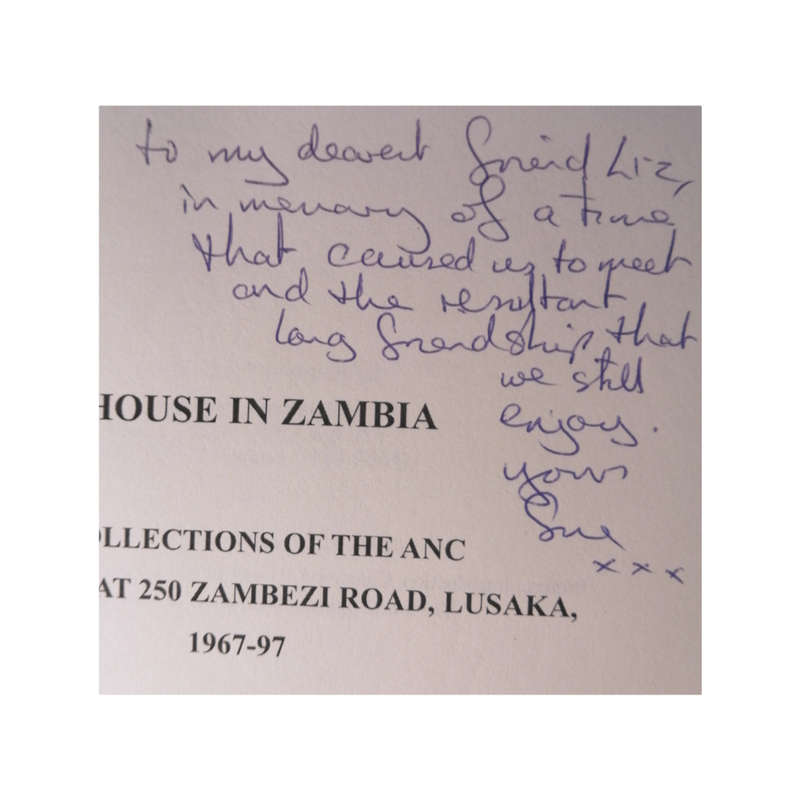 to my dearest friend Liz,
in memory of a time
that caused us to meet
and the resultant
long friendship that
we still
enjoy.
yours
Sue
x x x
HOUSE IN ZAMBIA
OLLECTIONS OF THE ANC
AT 250 ZAMBEZI ROAD, LUSAKA,
1967-97